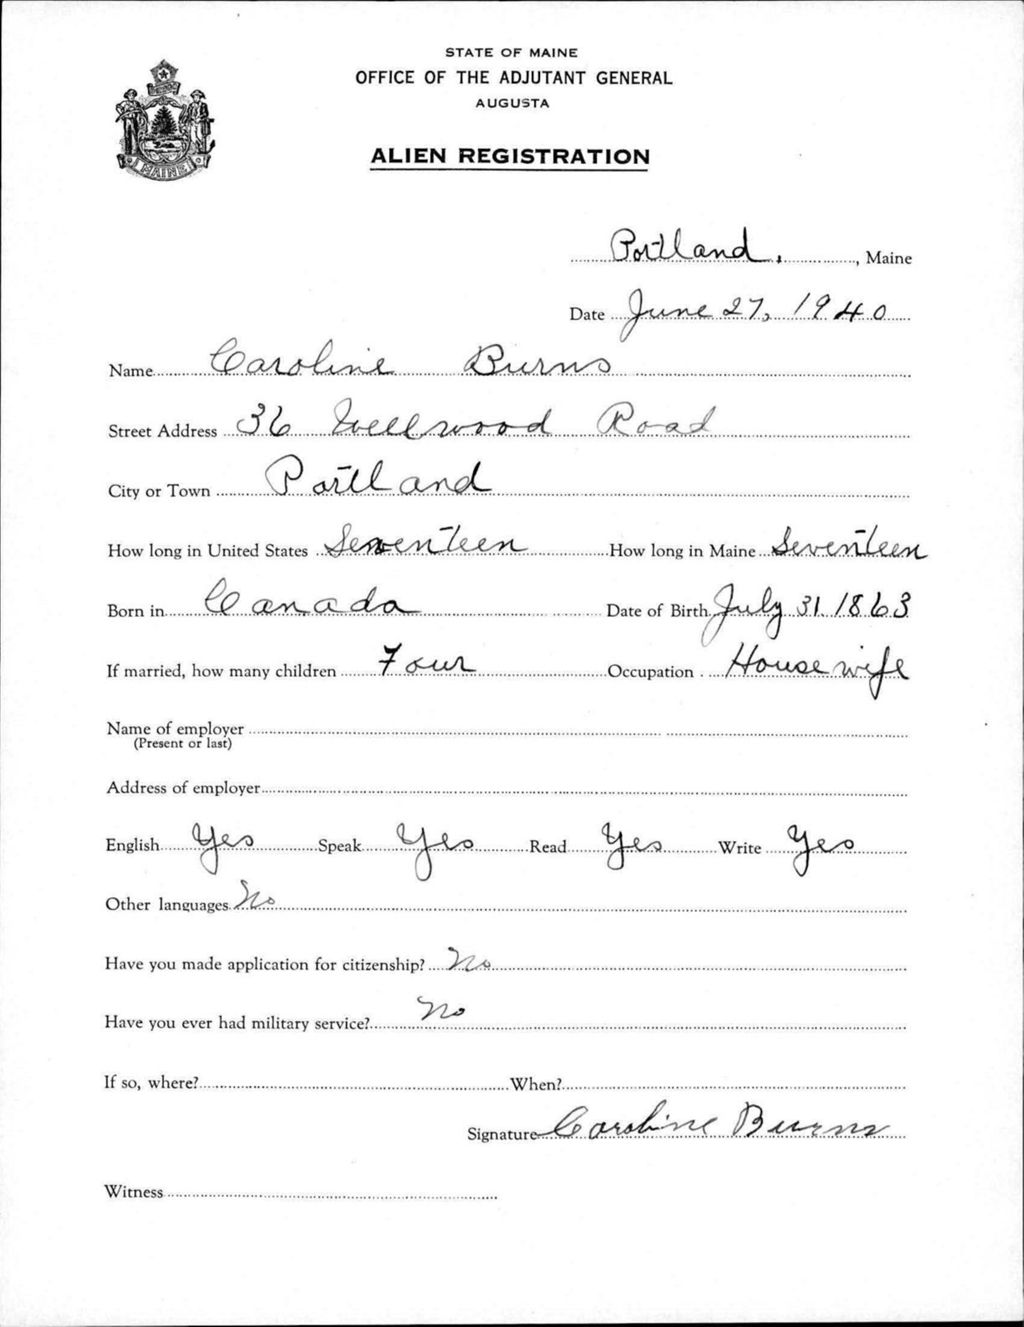 STATE OF MAINE
OFFICE OF THE ADJUTANT GENERAL
AUGUSTA
ALIEN REGISTRATION
MAINE
Portland, , Maine
Date June 27, 1940
Name Caroline Burns
Street Address 36 Wellwood Road
City or Town Portland
How long in United States Seventeen How long in Maine Seventeen
Born in Canada Date of Birth July 31 1863
If married, how many children Four Occupation House wife
Name of employer
(Present or last)
Address of employer
English Yes Speak Yes Read Yes Write Yes
Other languages No
Have you made application for citizenship? No
Have you ever had military service? No
If so, where? When?
Signature Caroline Burns
Witness